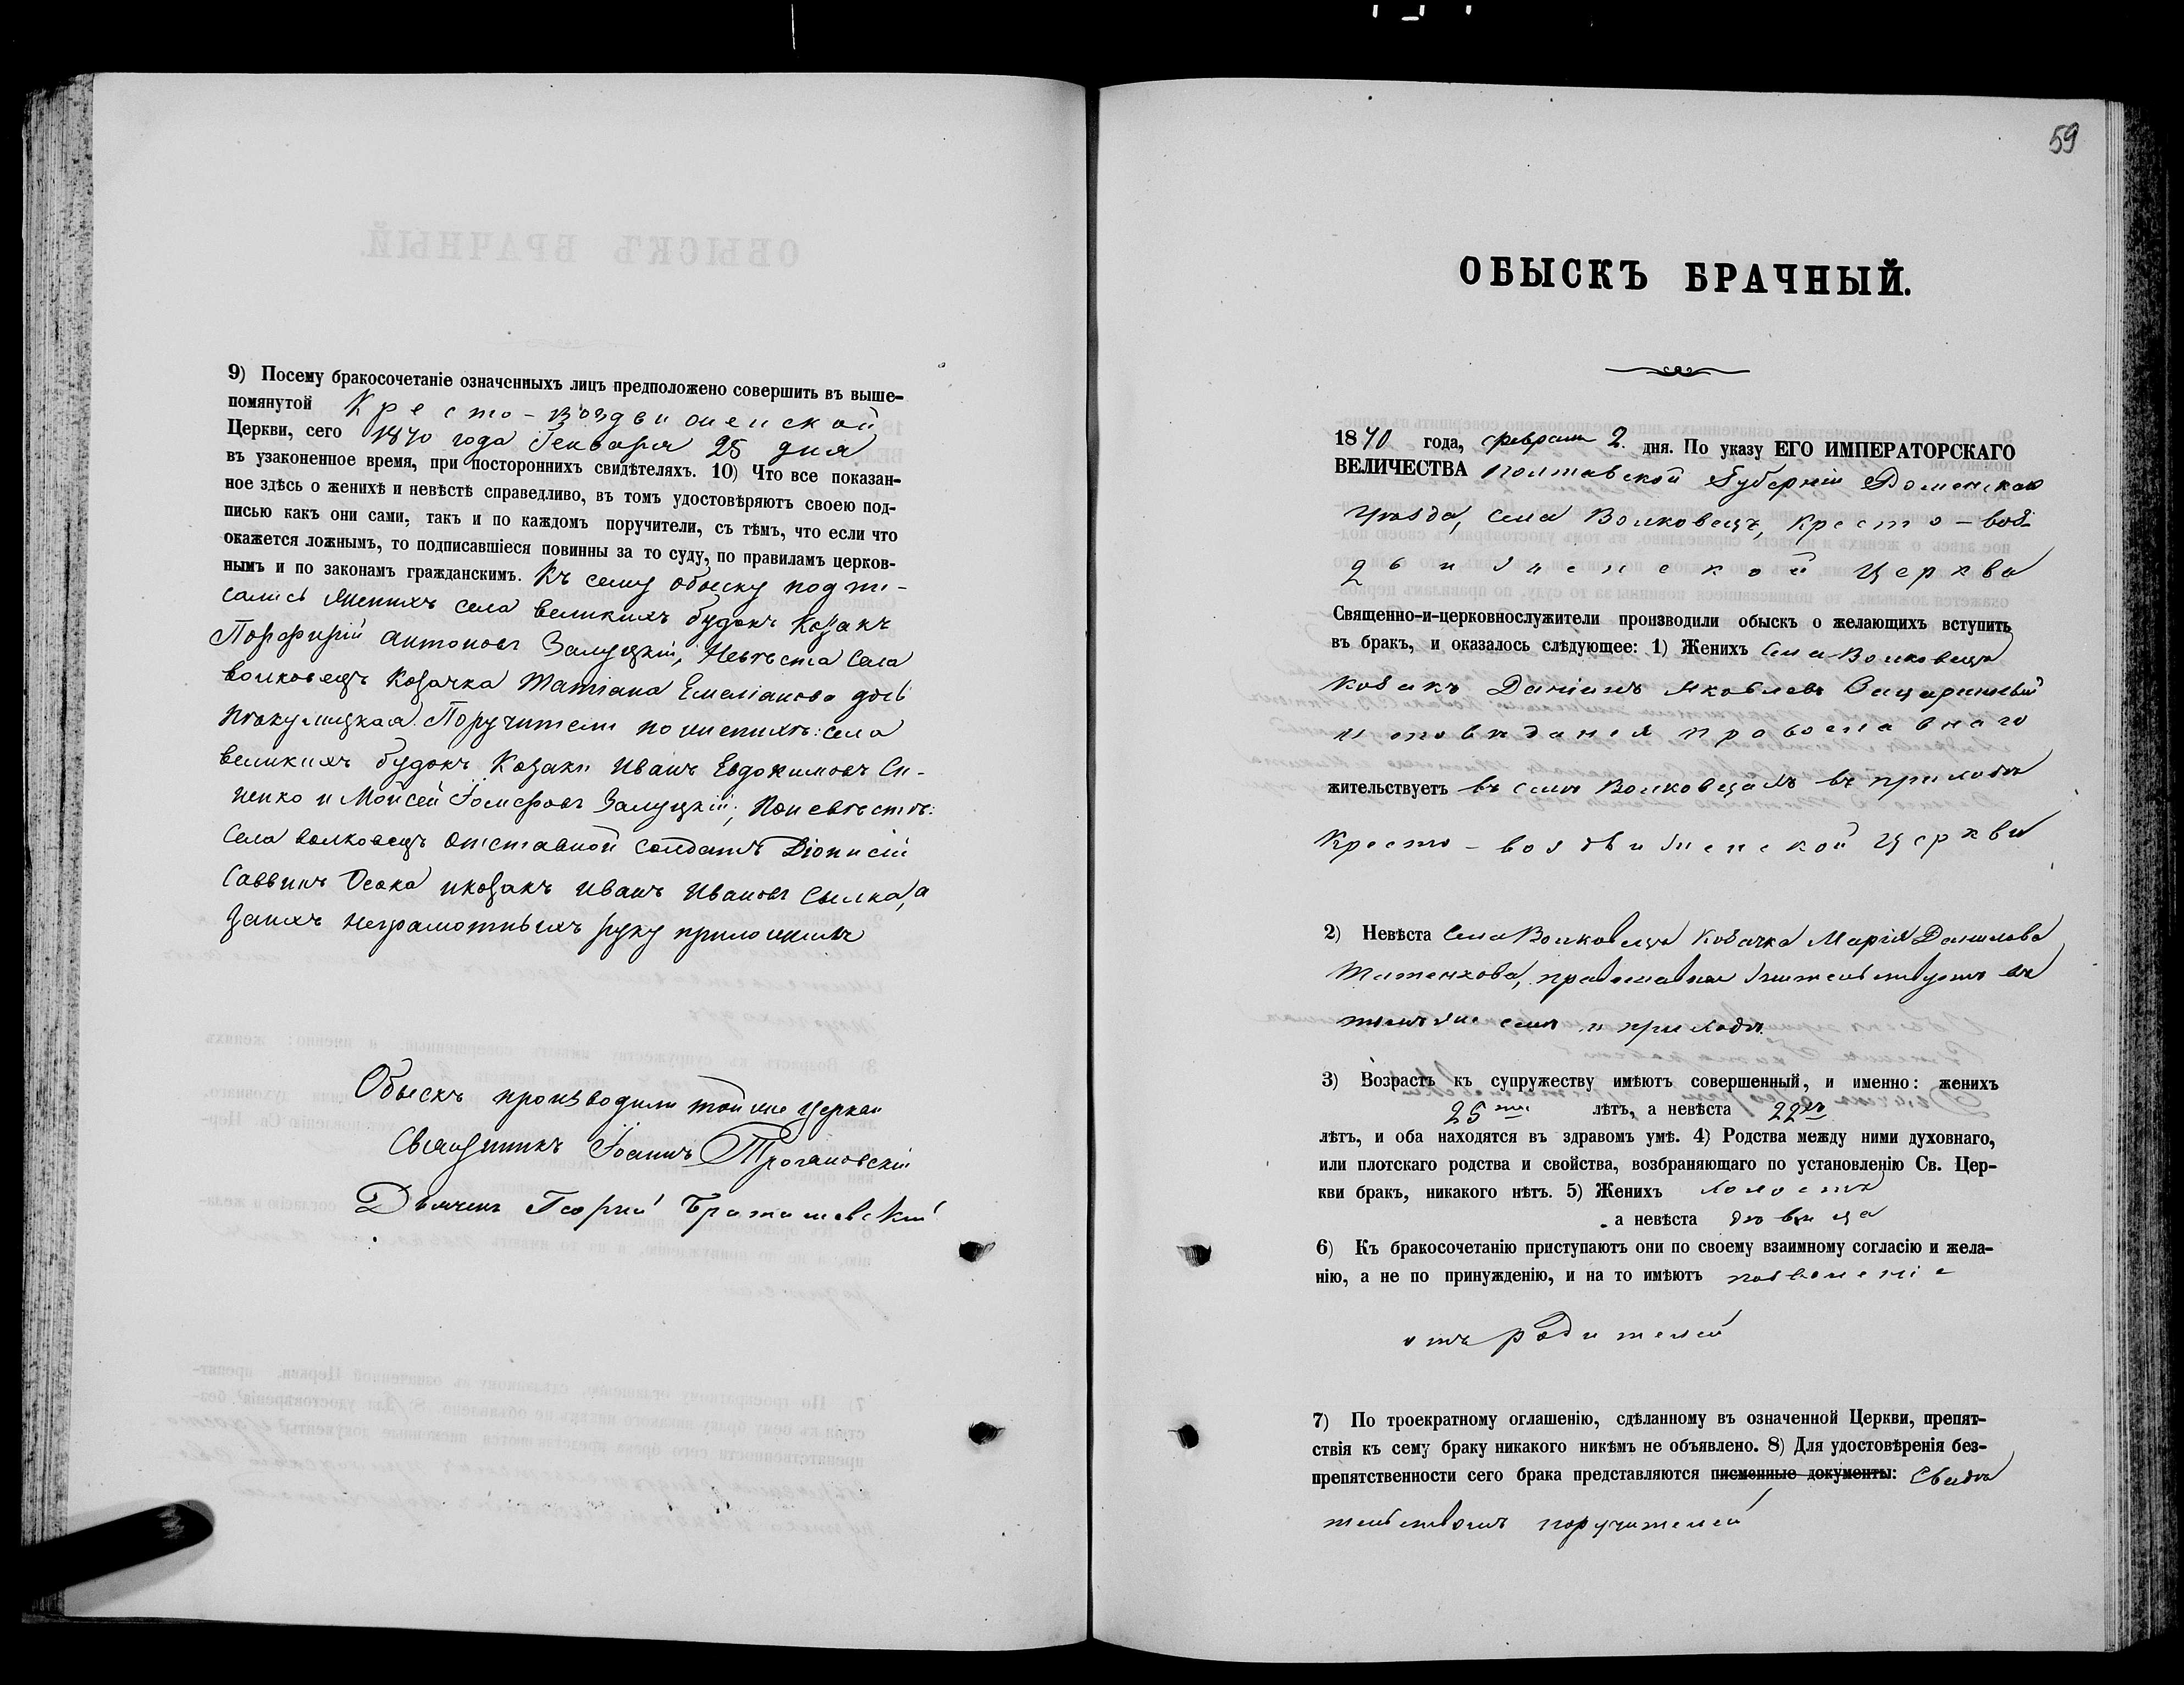 9) Посему бракосочетаніе означенныхъ лицъ предположено совершить въ выше-
помянутой Кресто-Воздвиженской
Церкви, сего 1870 года Генваря 25 дня
въ узаконенное время, при постороннихъ свидѣтеляхъ. 10) Что все показан-
ное здѣсь о женихѣ и невѣстѣ справедливо, въ томъ удостовѣряютъ своею под-
писью какъ они сами, такъ и по каждомъ поручители, съ тѣмъ, что если что
окажется ложнымъ, то подписавшіеся повинны за то суду, по правиламъ церков-
нымъ и по законамъ гражданскимъ. Къ сему обыску подпи-
сались Женихъ села великихъ будокъ Козакъ
Порфирій Антоновъ Залуцкій, Невѣста Села
волковецъ Козачка Татіана Емеліанова дочь
Поручители по женихѣ: села
великихъ будокъ Козаки Иванъ Евдокимовъ Си-
ненко и Моисей Іосифовъ Залуцкій; По невѣстѣ:
Села волковецъ отставной солдатъ Діонисій
Саввинъ Осока и козакъ Иванъ Ивановъ Сылка, а
за нихъ неграмотныхъ руку приложилъ
Обыскъ производили той же церкви
Священникъ Іоаннъ Трояновскій
Дьячекъ Георгій
59
ОБЫСКЪ БРАЧНЫЙ.
1870 года, февраля 2. дня. По указу ЕГО ИМПЕРАТОРСКАГО
ВЕЛИЧЕСТВА Полтавской Губерніи Роменскаго
Уѣзда, села Волковецъ, Кресто-воз-
движенской Церкви
Священно-и-церковнослужители производили обыскъ о желающихъ вступить
въ бракъ, и оказалось слѣдующее: 1) Женихъ Села Волковецъ
козакъ Даніилъ Яковлевъ
исповѣданія православнаго
жительствуетъ въ селѣ Волковцахъ въ приходѣ
Кресто-воздвиженской Церкви
2) Невѣста Села Волковецъ Козачка Марія Данилова
православная жительствуетъ въ
томъ же селѣ и приходѣ.
3) Возрастъ къ супружеству имѣютъ совершенный, и именно: женихъ
25ти лѣтъ, а невѣста 22хъ
лѣтъ, и оба находятся въ здравомъ умѣ. 4) Родства между ними духовнаго,
или плотскаго родства и свойства, возбраняющаго по установленію Св. Цер-
кви бракъ, никакого нѣтъ. 5) Женихъ холостъ
а невѣста дѣвица
6) Къ бракосочетанію приступаютъ они по своему взаимному согласію и жела-
нію, а не по принужденію, и на то имѣютъ позволеніе
отъ родителей
7) По троекратному оглашенію, сдѣланному въ означенной Церкви, препят-
ствія къ сему браку никакого никѣмъ не объявлено. 8) Для удостовѣренія без-
препятственности сего брака представляются писменные документы: Свидѣ
тельствомъ поручителей